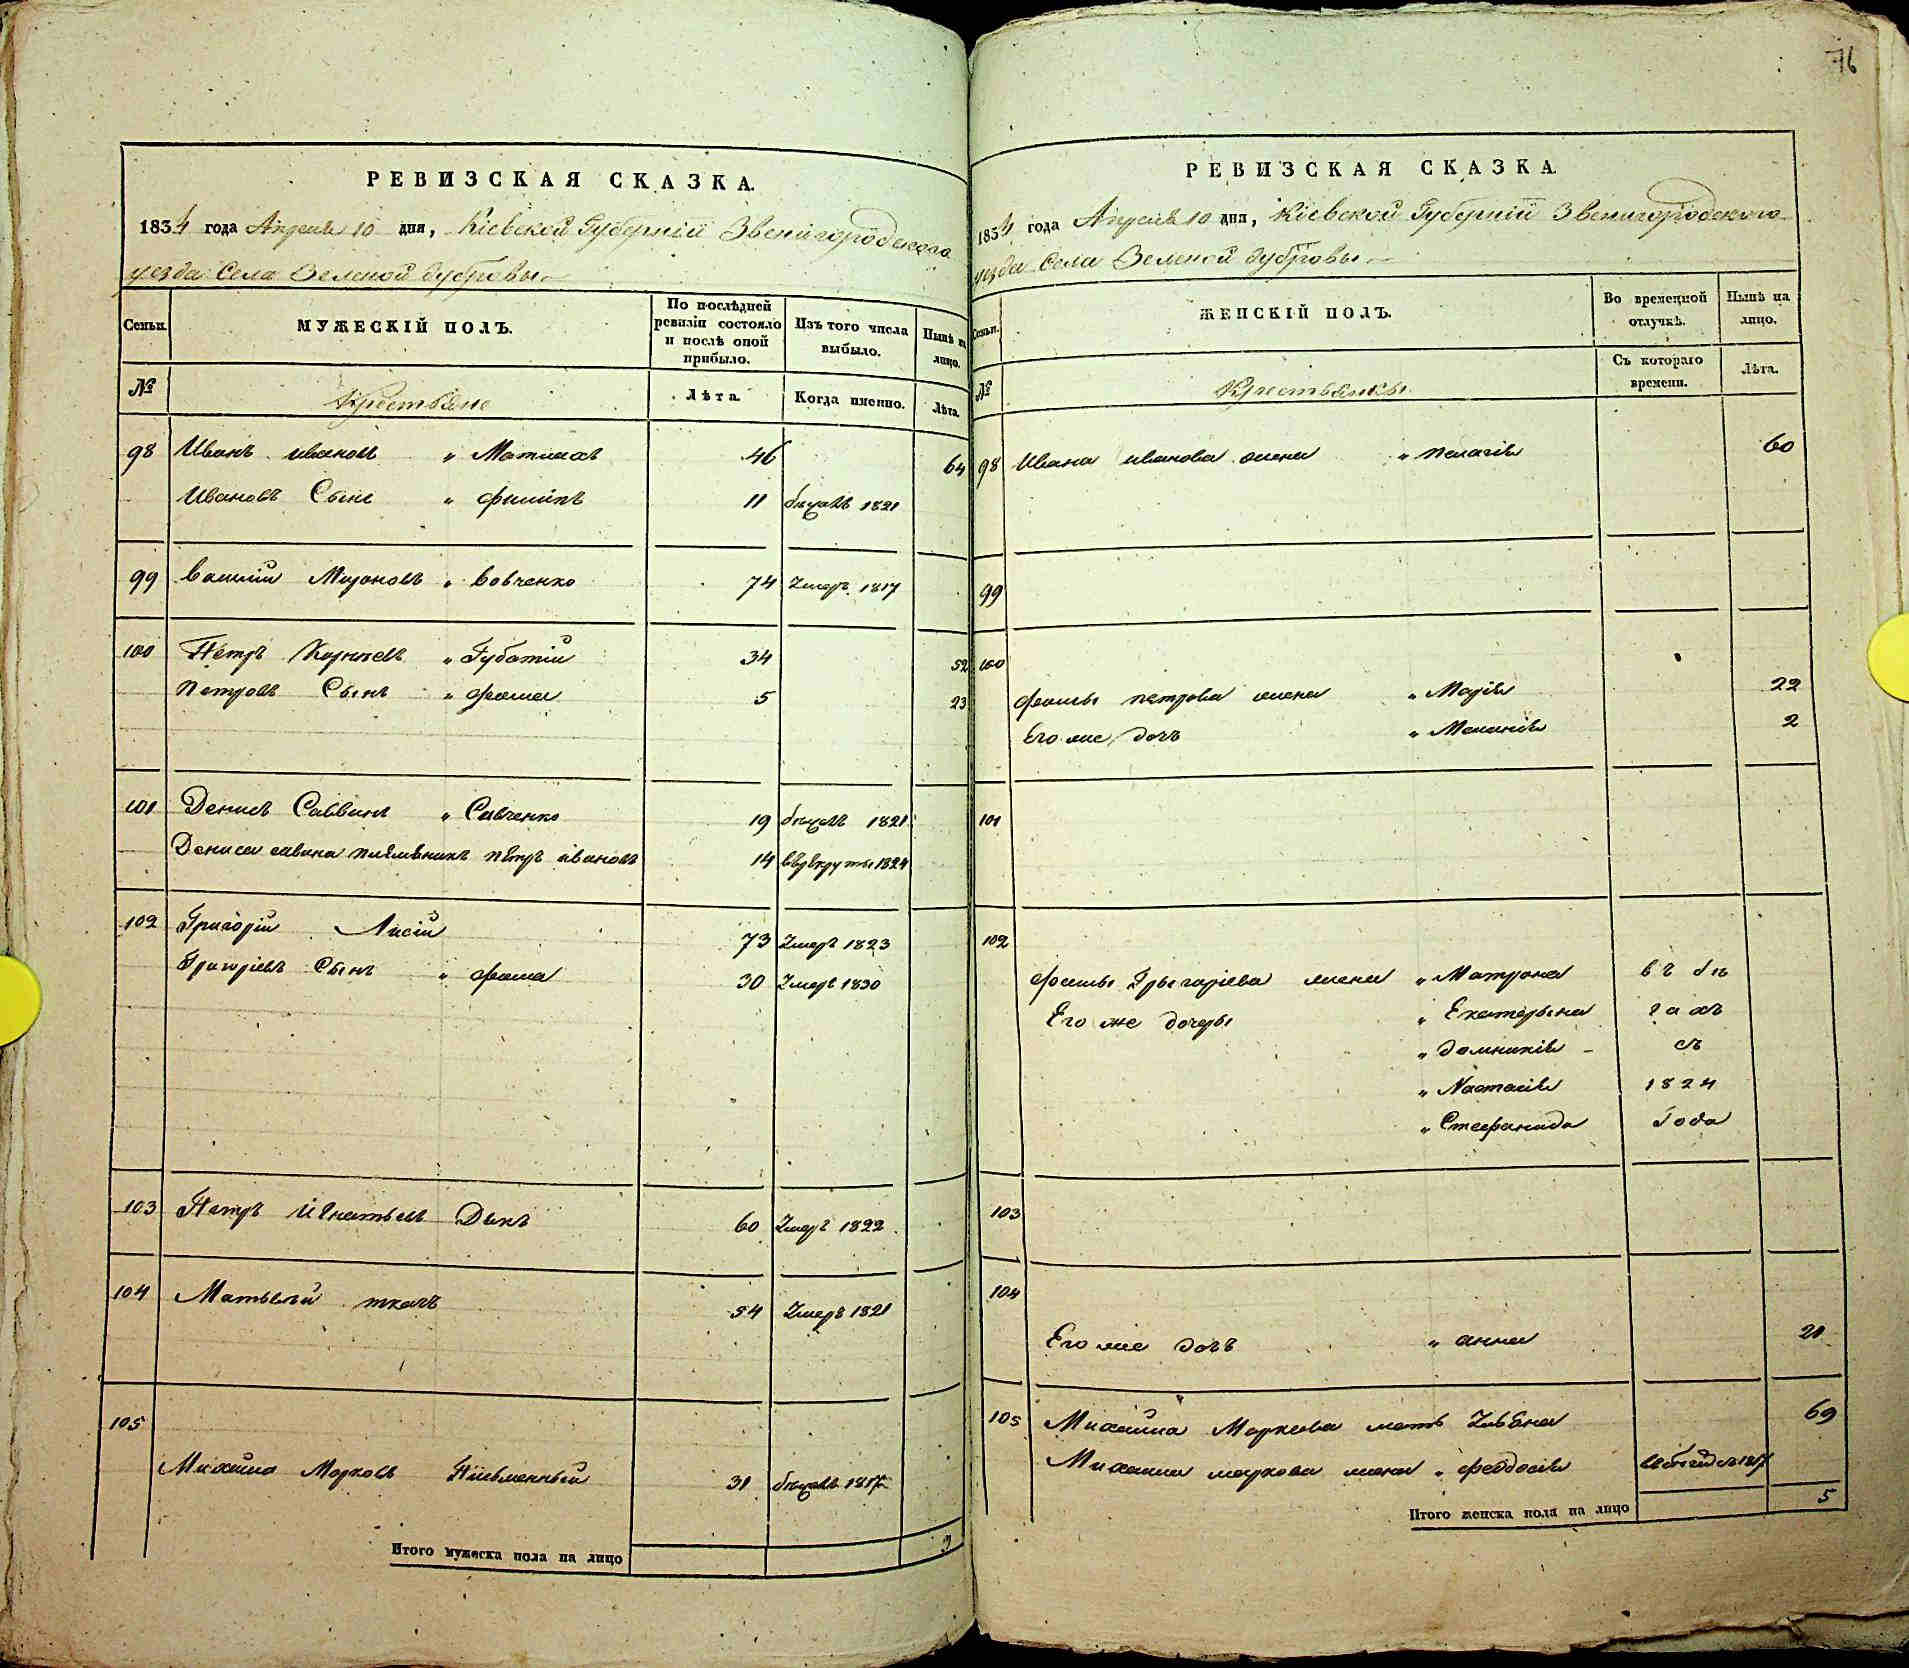 РЕВИЗСКАЯ СКАЗКА.
1834 года Апреля 10 дня, Кіевской Губерніи Звенигородского
уезда Села Зеленой дубровы
Семьи. МУЖЕСКІЙ ПОЛЪ. По послѣдней ревизіи состояло и послѣ оной прибыло. Изъ того числа выбыло. Нынѣ на лицо.
№ Крестьяне Лѣта. Когда имянно. Лѣта.
98 Иванъ ивановъ „ 46 64
Ивановъ Сынъ „ филипъ 11 бѣжалъ 1821
99 Василій Мироновъ „ Вовченко 74 Умеръ 1817
100 Пётръ Корнѣевъ „ Губатій 34 52
Петровъ Сынъ „ фома 5 23
101 Денисъ Саввинъ „ Савченко 19 бѣжалъ 1821
Дениса савина племѣникъ пётръ ивановъ 14 врекруты 1824
102 Григорій Лисій 73 Умеръ 1823
Григоріевъ Сынъ „ фома 30 Умеръ 1830
103 Пётръ Игнатьевъ Дыкъ 60 Умеръ 1822
104 Матвѣй ткачъ 54 Умеръ 1821
105
Михайло Марковъ Письменный 31 бѣжалъ 1817
Итого мужеска пола на лицо 2
76
РЕВИЗСКАЯ СКАЗКА.
1834 года Апреля 10 дня, Кіевской Губерніи Звенигородского
уезда Села Зеленой дубровы
Семьи. ЖЕНСКІЙ ПОЛЪ. Во временной отлучкѣ. Нынѣ на лицо.
№ Крестьянки Съ котораго времени. Лѣта.
98 Ивана иванова жена „ пелагія 60
99
100
фомы петрова жена „ Марія 22
Его же дочъ „ Меланія 2
101
102
фомы Григоріева жена „ Матрона въ бѣ
Его же дочеры „ Екатерына гахъ
„ домникія съ
„ Настасія 1824
„ Стефанида года
103
104
Его же дочъ „ анна 21
105 Михайла Маркова мать Ульяна 69
Михайла маркова жена „ феодосія
Итого женска пола на лицо 5